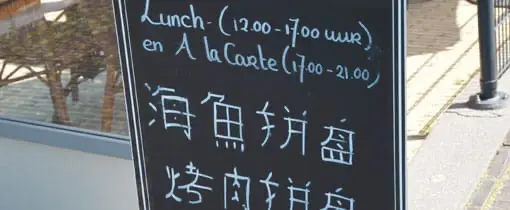 Lunch-(12.00-17.00 uur)
en A la Carte (17.00-21.00)
海魚拼盘
烤肉拼盘